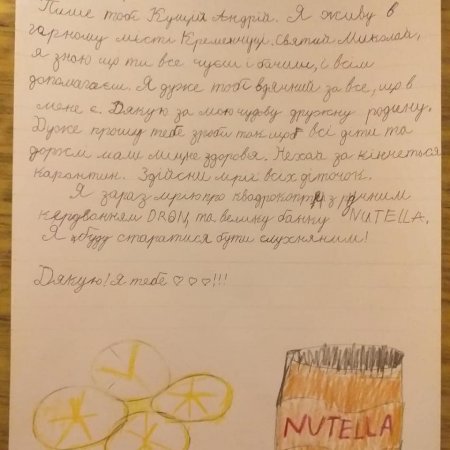 Пише тобі Куций Андрій. Я живу в
гарному місті Кременчуці. Святий Миколай,
я знаю що ти все чуєш і бачиш, і всім
допомагаєш. Я дуже тобі вдячний за все, що в
мене є. Дякую за мою чудову дружну родину.
Дуже прошу тебе зроби так щоб всі діти та
дорослі мали міцне здоровя. Нехай закінчеться
карантин. Здійсни мрії всіх діточок.
Я зараз мрію про квадрокоптер з ручним
керуванням DRON, та велику банку NUTELLA.
Я буду старатися бути слухняним!
Дякую! Я тебе ♡♡♡!!!
NUTELLA